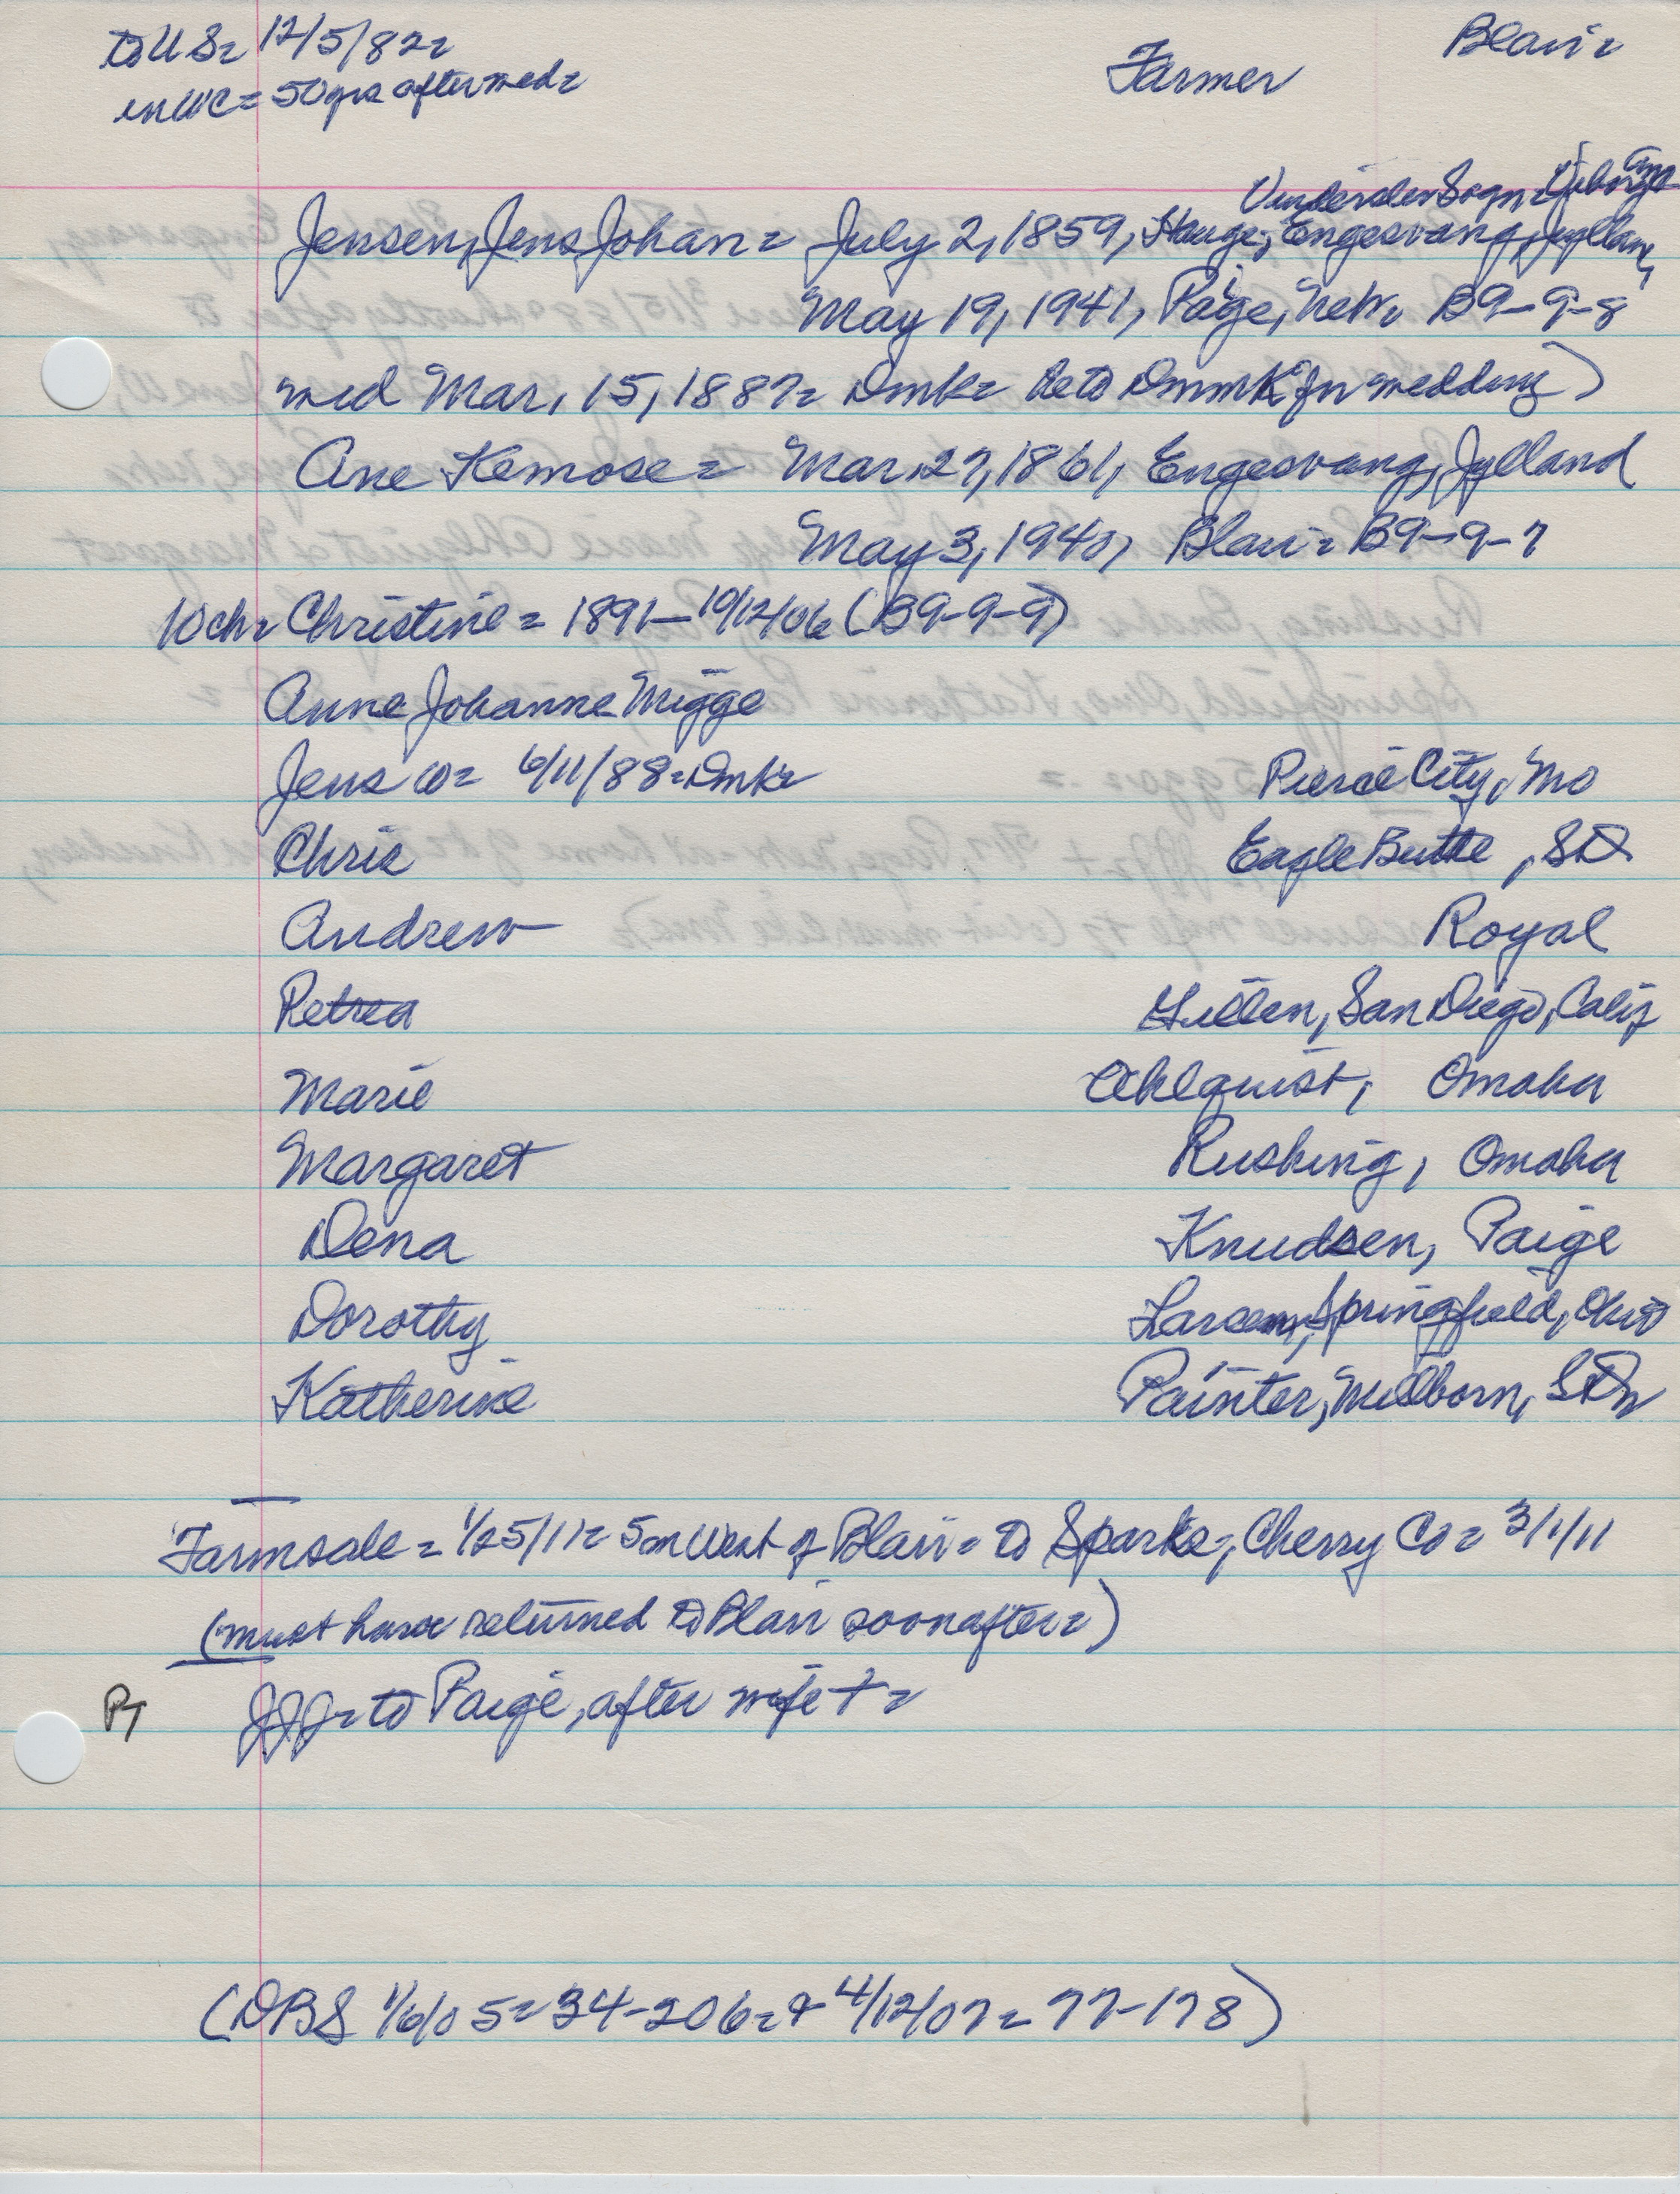 to US= 12/5/82=
in WC= 50 yrs after wed=
Farmer
Blair=
Vinderslev Sogn= Viborg Amt
Jensen, Jens Johan= July 2, 1859, Hauge, Engesvang, Jylland,
May 19, 1941, Paige, Nebr B9-9-8
wed Mar, 15, 1887= Dmk= he to Dnmk for wedding)
Ane Kemose= Mar, 27, 1861, Engesvang, Jylland
May 3, 1940, Blair= B9-9-7
10 ch= Christine= 1891- 10/12/06 (B9-9-9)
Anne Johanne Migge
Jens W= 6/11/88= Dmk= Pierce City, Mo
Chris Eagle Butte, SD
Andrew Royal
Petrea San Diego, Calif
Marie Ahlquist, Omaha
Margaret Rushing, Omaha
Dena Knudsen, Paige
Dorothy Larsen, Springfield, Ohio
Katherine Painter, Millborn, SD=
Farm sale= 1/25/11= 5m West of Blair= to Sparks, Cherry Co= 3/1/11
(must have returned to Blair soon after=)
JJJ= to Paige, after wife +=
(DBS 1/6/05= 34-206= & 4/12/07= 77-178)